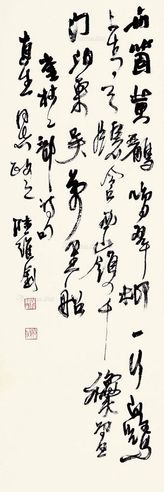 兩箇黃鸝鳴翠柳一行白鷺
上青天牕含西嶺千龝雪
門泊東吳萬里船
書杜工部詩句
同志政之 陸維釗